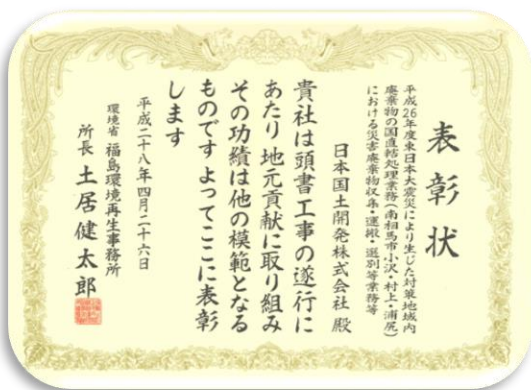 表彰状
平成26年度東日本大震災により生じた対策地域内
廃棄物の国直轄処理業務(南相馬市小沢・村上・浦尻)
における災害廃棄物収集・運搬・選別等業務等
日本国土開発株式会社 殿
貴社は頭書工事の遂行に
あたり 地元貢献に取り組み
その功績は他の模範となる
ものです よってここに表彰
します
平成二十八年四月二十六日
環境省 福島環境再生事務所
所長 土居健太郎